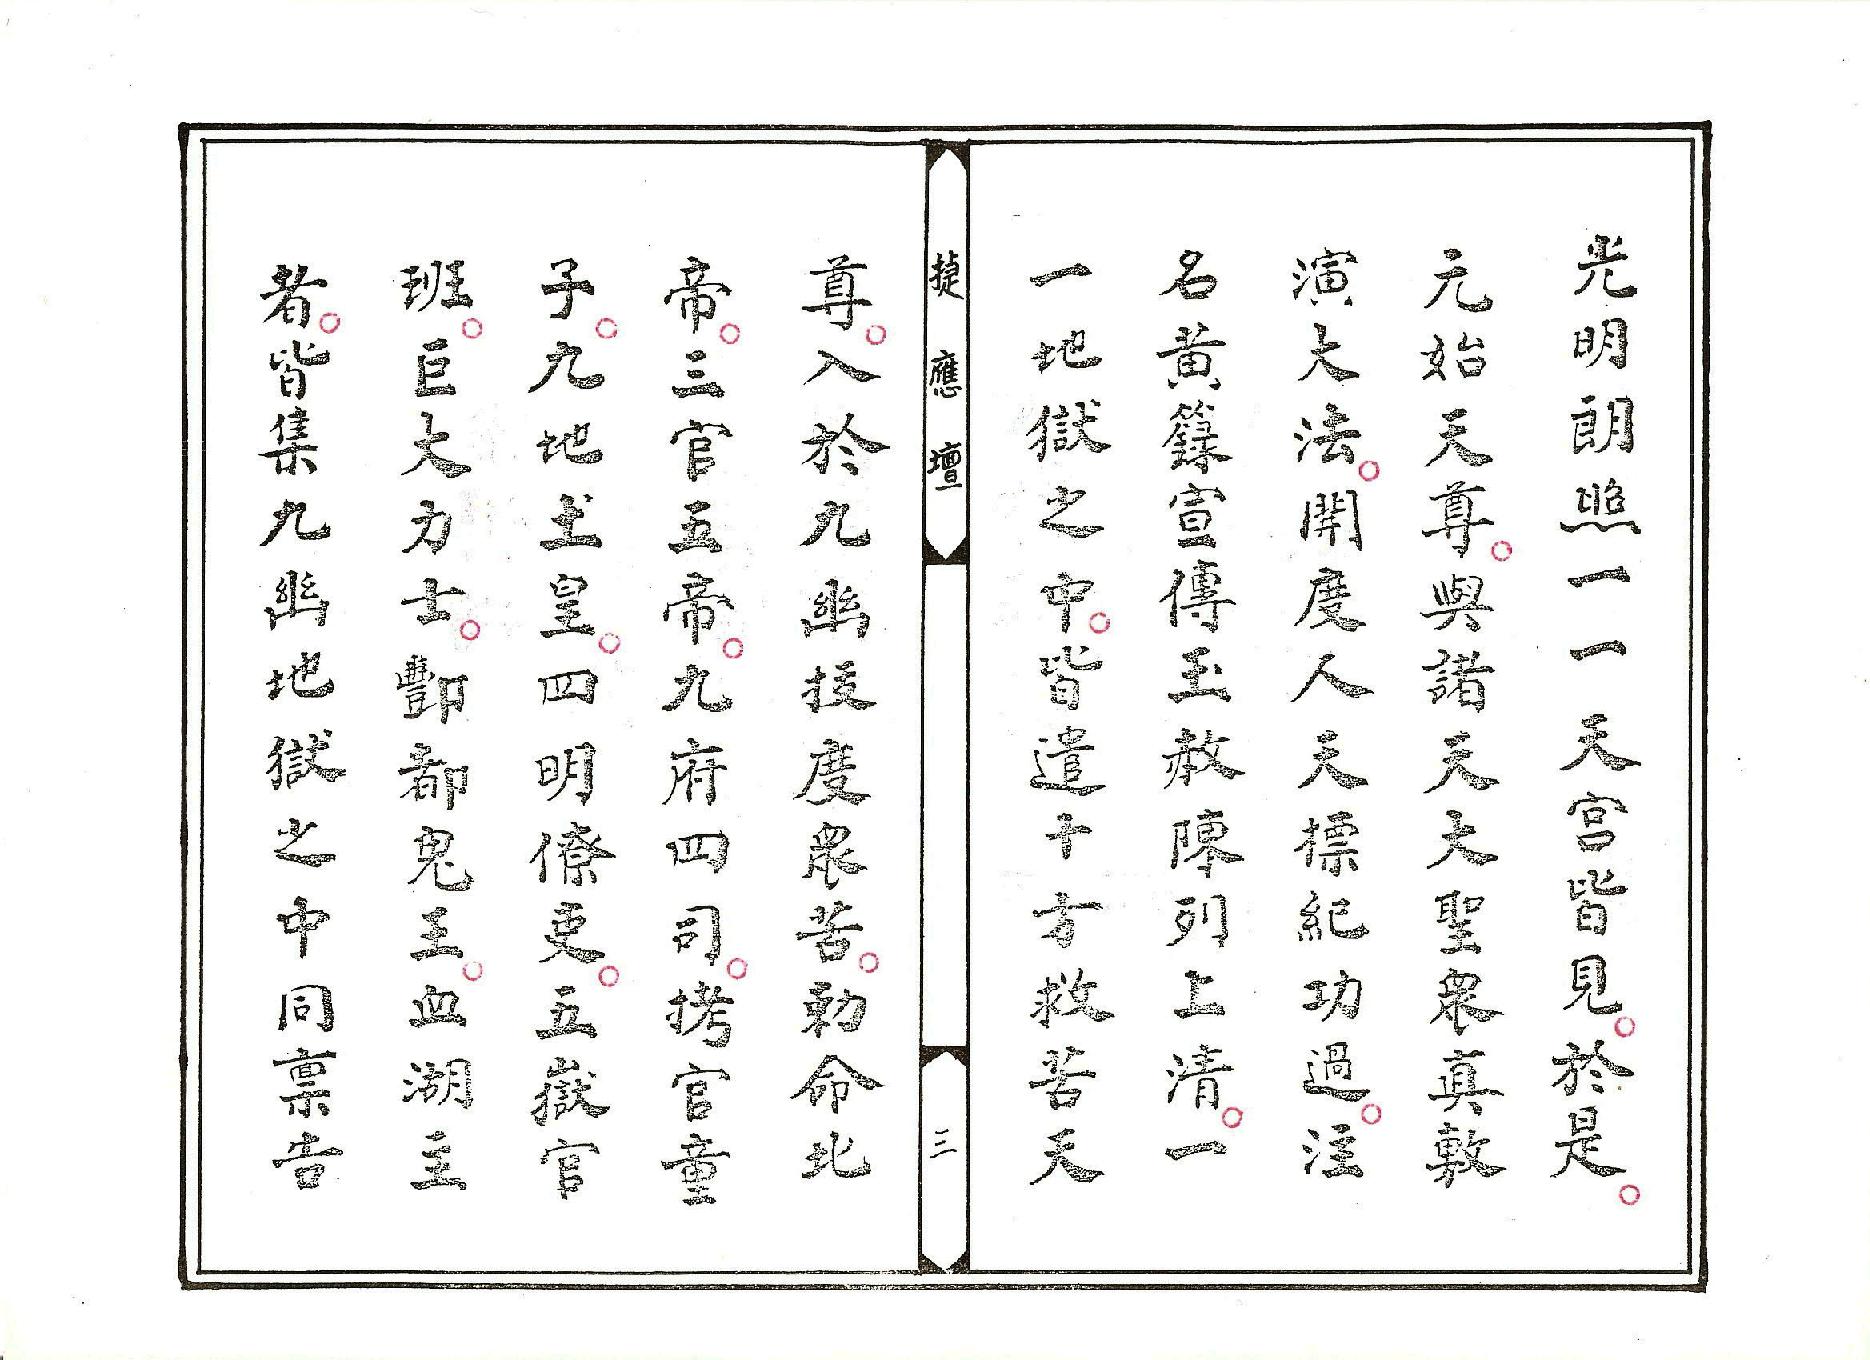 光明朗照一一天宮皆見。於是。
元始天尊。與諸天大聖衆真敷
演大法。開度人天標紀功過。注
名黃籙宣傳玉赦陳列上清。一
一地獄之中。皆遣十方救苦天
捷應壇
三
尊。入於九幽拔度衆苦。勅命北
帝。三官五帝。九府四司。拷官童
子。九地土皇。四明僚吏。五嶽官
班。巨大力士。酆都鬼王。血湖主
者。皆集九幽地獄之中同稟告